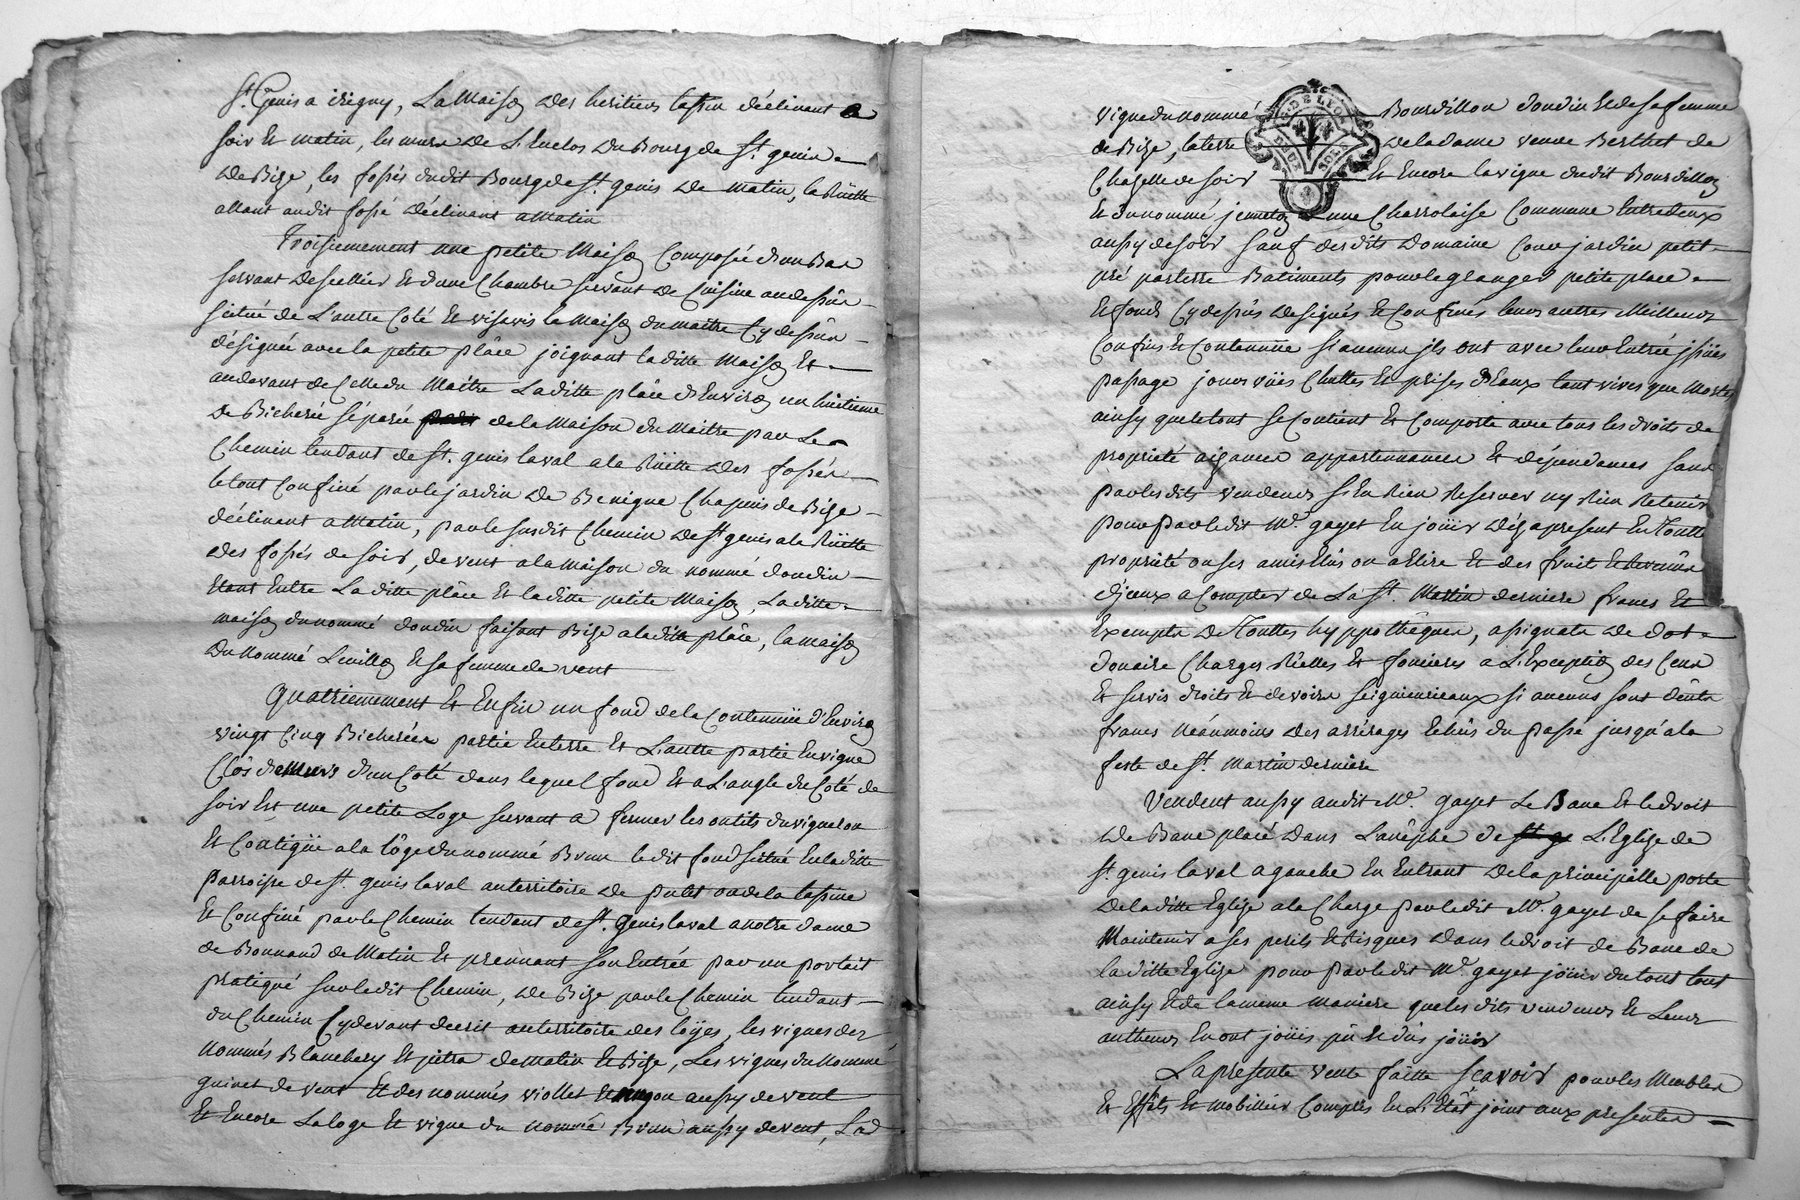 St. Genis a irigny, La Maison des heritiers tassin déclinant a
soir Et matin, les murs de L'Enclos du Bourg de St. genis
de Bize, les fossés dudit Bourg de St. genis de matin, la Rüette
allant audit fossé déclinant a Matin
Troisiemement une petite Maison Composée d'un Bas
servant de sellier Et d'une Chambre servant de Cuisine au dessus
scituée de L'autre Coté Et visavis la Maison du maitre Cy dessus
désignée avec la petite place joignant la ditte Maison Et
au devant de Celle du Maitre La ditte place d'Environ un huitieme
de Bicherée séparée de la Maison du Maitre par Le
Chemin tendant de St. genis laval a la Rüette des fossés
le tout Confiné par le jardin de Benigne Chapuis de Bize
déclinant a Matin, par le susdit Chemin de St genis a la Rüette
des fossés de soir, de vent a la maison du nommé doudin
Etant Entre La ditte place Et la ditte petite Maison, La ditte
maison du nommé doudin faisant Bize a la ditte place, la maison
du Nommé Et sa femme de vent
Quatriemement Et Enfin un fond de la Contenuë d'Environ
vingt Cinq Bicherées partie En terre Et L'autre partie En vigne
Clos de murs d'un Coté dans lequel fond Et a L'angle du Coté de
soir Est une petite Loge servant a fermer les outils du vigneron
Et Contigüe a la loge du nommé Brun le dit fond scitué En la ditte
Parroisse de St. genis laval au territoire de
Et Confiné par le Chemin tendant de St. genis laval a notre dame
de Bonnand de Matin Et prennant son Entrée par un portail
pratiqué sur le dit Chemin, de Bize par le Chemin tendant
du Chemin Cy devant decrit au territoire des les vignes des
Nommés Et de matin Et Bize, Les vignes du Nommé
guinet de vent Et des nommés viollet aussy de vent
Et Encore La loge Et vigne du nommé Brun aussy de vent, Lad
vigne du Nommé Bourdillon doudin Et de sa femme
de Bize, la terre de la dame veuve Berthet de
Chazelle de soir Et Encore la vigne dudit Bourdillon
Et du nommé une Charrolaise Commune Entre deux
aussy de soir sauf desdits Domaine Cour jardin petit
pré parterre Batiments pour le granger petite place
Et fonds Cy dessus designés Et Confinés leurs autres Meilleurs
Confins Et Contenuë si aucuns ils ont avec leur Entrée issües
passage jours vües Chuttes Et prises d'Eaux tant vives que Mortes
ainsy que le tout se Contient Et Comporte avec tous les droits de
propriété aizances appartenances Et dépendances sans
par lesdits vendeurs s'En Rien Reserver ny Rien Retenir
pour par le dit Mr. gayet En joüir dez apresent En Toutte
propriété ou ses amis Elûs ou a Elire Et des fruit Et Revenûs
d'jceux a Compter de La St. Martin derniere francs Et
Exempts de Touttes hyppothêques, assignats de dot
douaire Charges Réelles Et foncieres a L'Exception des Cens
Et servis droits Et devoirs seigneuriaux si aucuns sont dûts
francs Néanmoins des arrérages Echûs du passé jusqu'a la
feste de St. Martin derniere
Vendent aussy audit Mr. gayet Le Banc Et le droit
de Banc placé dans La de L'Eglize de
St. genis laval a gauche En Entrant de la principalle porte
de la ditte Eglize a la Charge par le dit Mr. gayet de se faire
Maintenir a ses perils Et Risques dans le droit de Banc de
la ditte Eglize pour par le dit Mr. gayet joüir du tout tout
ainsy Et de la meme maniere que les dits vendeurs Et Leurs
autheurs En ont joüis pû Et dûs joüir
La presente vente faitte sçavoir pour les Meubles
Et Effets Et mobillier Compris En L'Etat joint aux presentes